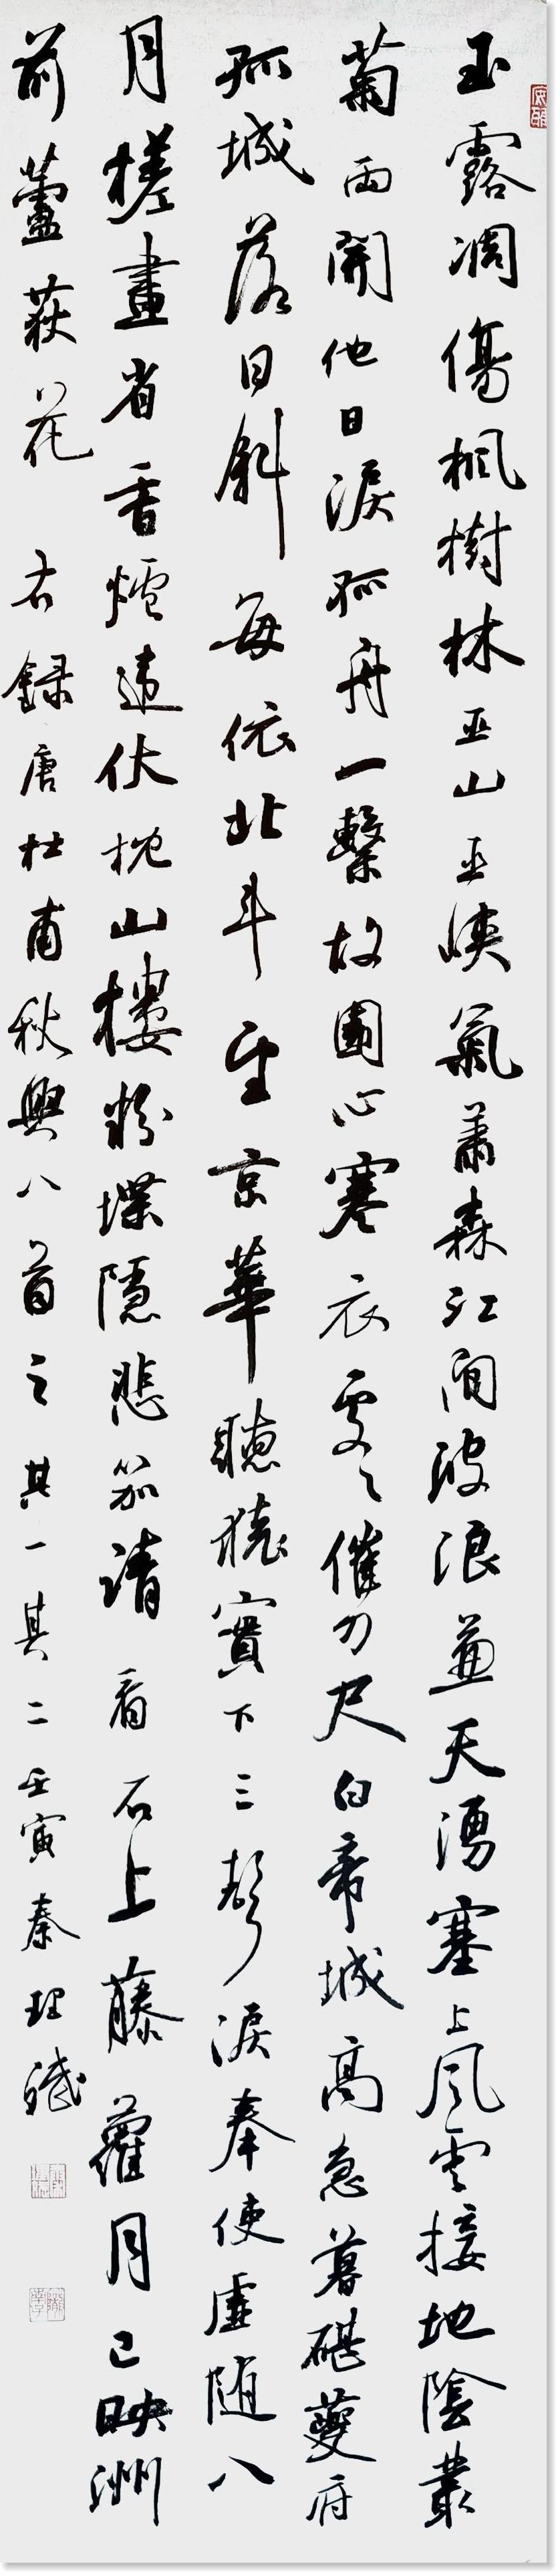 玉露凋傷楓樹林巫山巫峽氣蕭森江間波浪兼天湧塞上風雲接地陰叢
菊兩開他日淚孤舟一繫故園心寒衣處々催刀尺白帝城高急暮碪夔府
孤城落日斜每依北斗望京華聽猿實下三聲淚奉使虛隨八
月槎畫省香爐違伏枕山樓粉堞隱悲笳請看石上藤蘿月已映洲
前蘆荻花 右録唐杜甫秋興八首之其一其二壬寅秦理斌